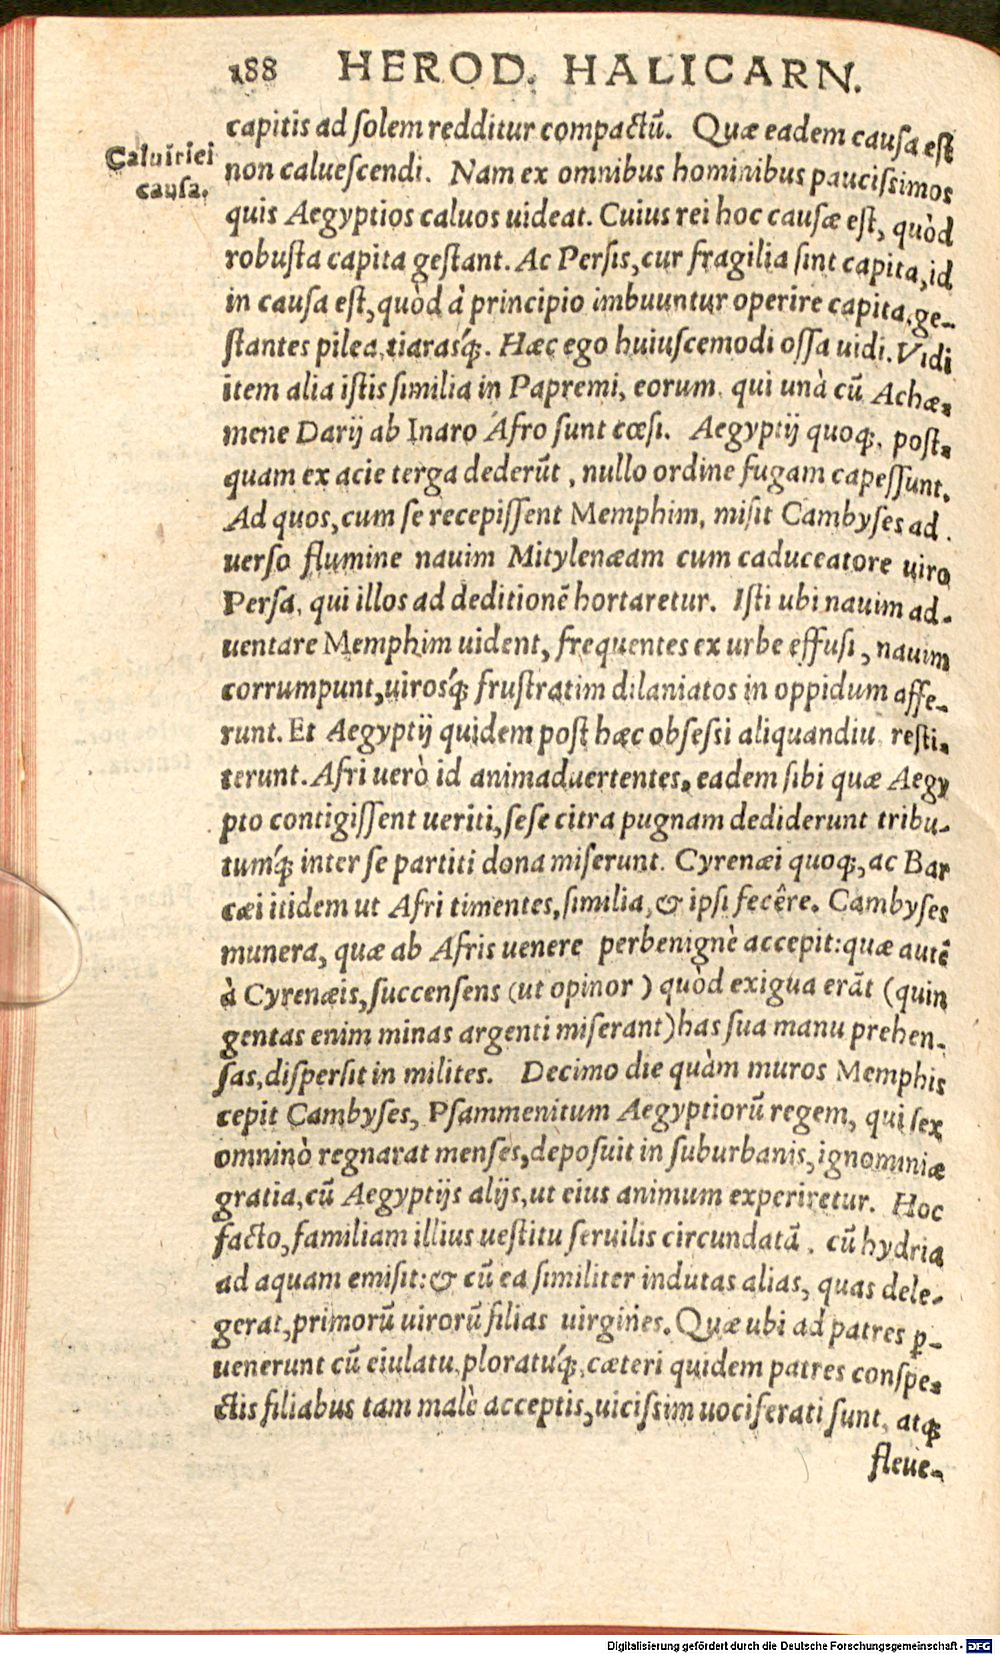 188 HEROD. HALICARN.
capitis ad ſolem redditur compactũ. Quæ eadem cauſa eſt
Caluitiei
cauſa.
non calueſcendi. Nam ex omnibus hominibus pauciſsimos
quis Aegyptios caluos uideat. Cuius rei hoc cauſæ eſt, quòd
robuſta capita geſtant. Ac Perſis, cur fragilia ſint capita, id
in cauſa eſt, quòd à principio imbuuntur operire capita, ge-
ſtantes pilea, tiarasq́;. Hæc ego huiuſcemodi oſſa uidi. Vidi
item alia iſtis ſimilia in Papremi, eorum, qui unà cũ Achæ-
mene Darij ab Inaro Afro ſunt cæſi. Aegyptij quoq;, poſt-
quam ex acie terga dederũt, nullo ordine fugam capeſſunt.
Ad quos, cum ſe recepiſſent Memphim, miſit Cambyſes ad
uerſo flumine nauim Mitylenæam cum caduceatore uiro
Perſa, qui illos ad deditionẽ hortaretur. Iſti ubi nauim ad-
uentare Memphim uident, frequentes ex urbe effuſi, nauim
corrumpunt, uirosq́; fruſtratim dilaniatos in oppidum affe-
runt. Et Aegyptij quidem poſt hæc obſeſsi aliquandiu reſti-
terunt. Afri uerò id animaduertentes, eadem ſibi quæ Aegy
pto contigiſſent ueriti, ſeſe citra pugnam dediderunt tribu-
tumq́; inter ſe partiti dona miſerunt. Cyrenæi quoq;, ac Bar
cæi itidem ut Afri timentes, ſimilia, & ipſi fecêre. Cambyſes
munera, quæ ab Afris uenere perbenignè accepit: quæ autẽ
à Cyrenæis, ſuccenſens (ut opinor) quòd exigua erãt (quin
gentas enim minas argenti miſerant) has ſua manu prehen-
ſas, diſperſit in milites. Decimo die quàm muros Memphis
cepit Cambyſes, Pſammenitum Aegyptiorũ regem, qui ſex
omninò regnarat menſes, depoſuit in ſuburbanis, ignominiæ
gratia, cũ Aegyptijs alijs, ut eius animum experiretur. Hoc
facto, familiam illius ueſtitu ſeruilis circundatã, cũ hydria
ad aquam emiſit: & cũ ea ſimiliter indutas alias, quas dele-
gerat, primorũ uirorũ filias uirgines. Quæ ubi ad patres ꝑ-
uenerunt cũ eiulatu, ploratuq́;, cæteri quidem patres conſpe-
ctis filiabus tam malè acceptis, uiciſsim uociferati ſunt, atq;
fleue-
Digitalisierung gefördert durch die Deutsche Forschungsgemeinschaft - DFG